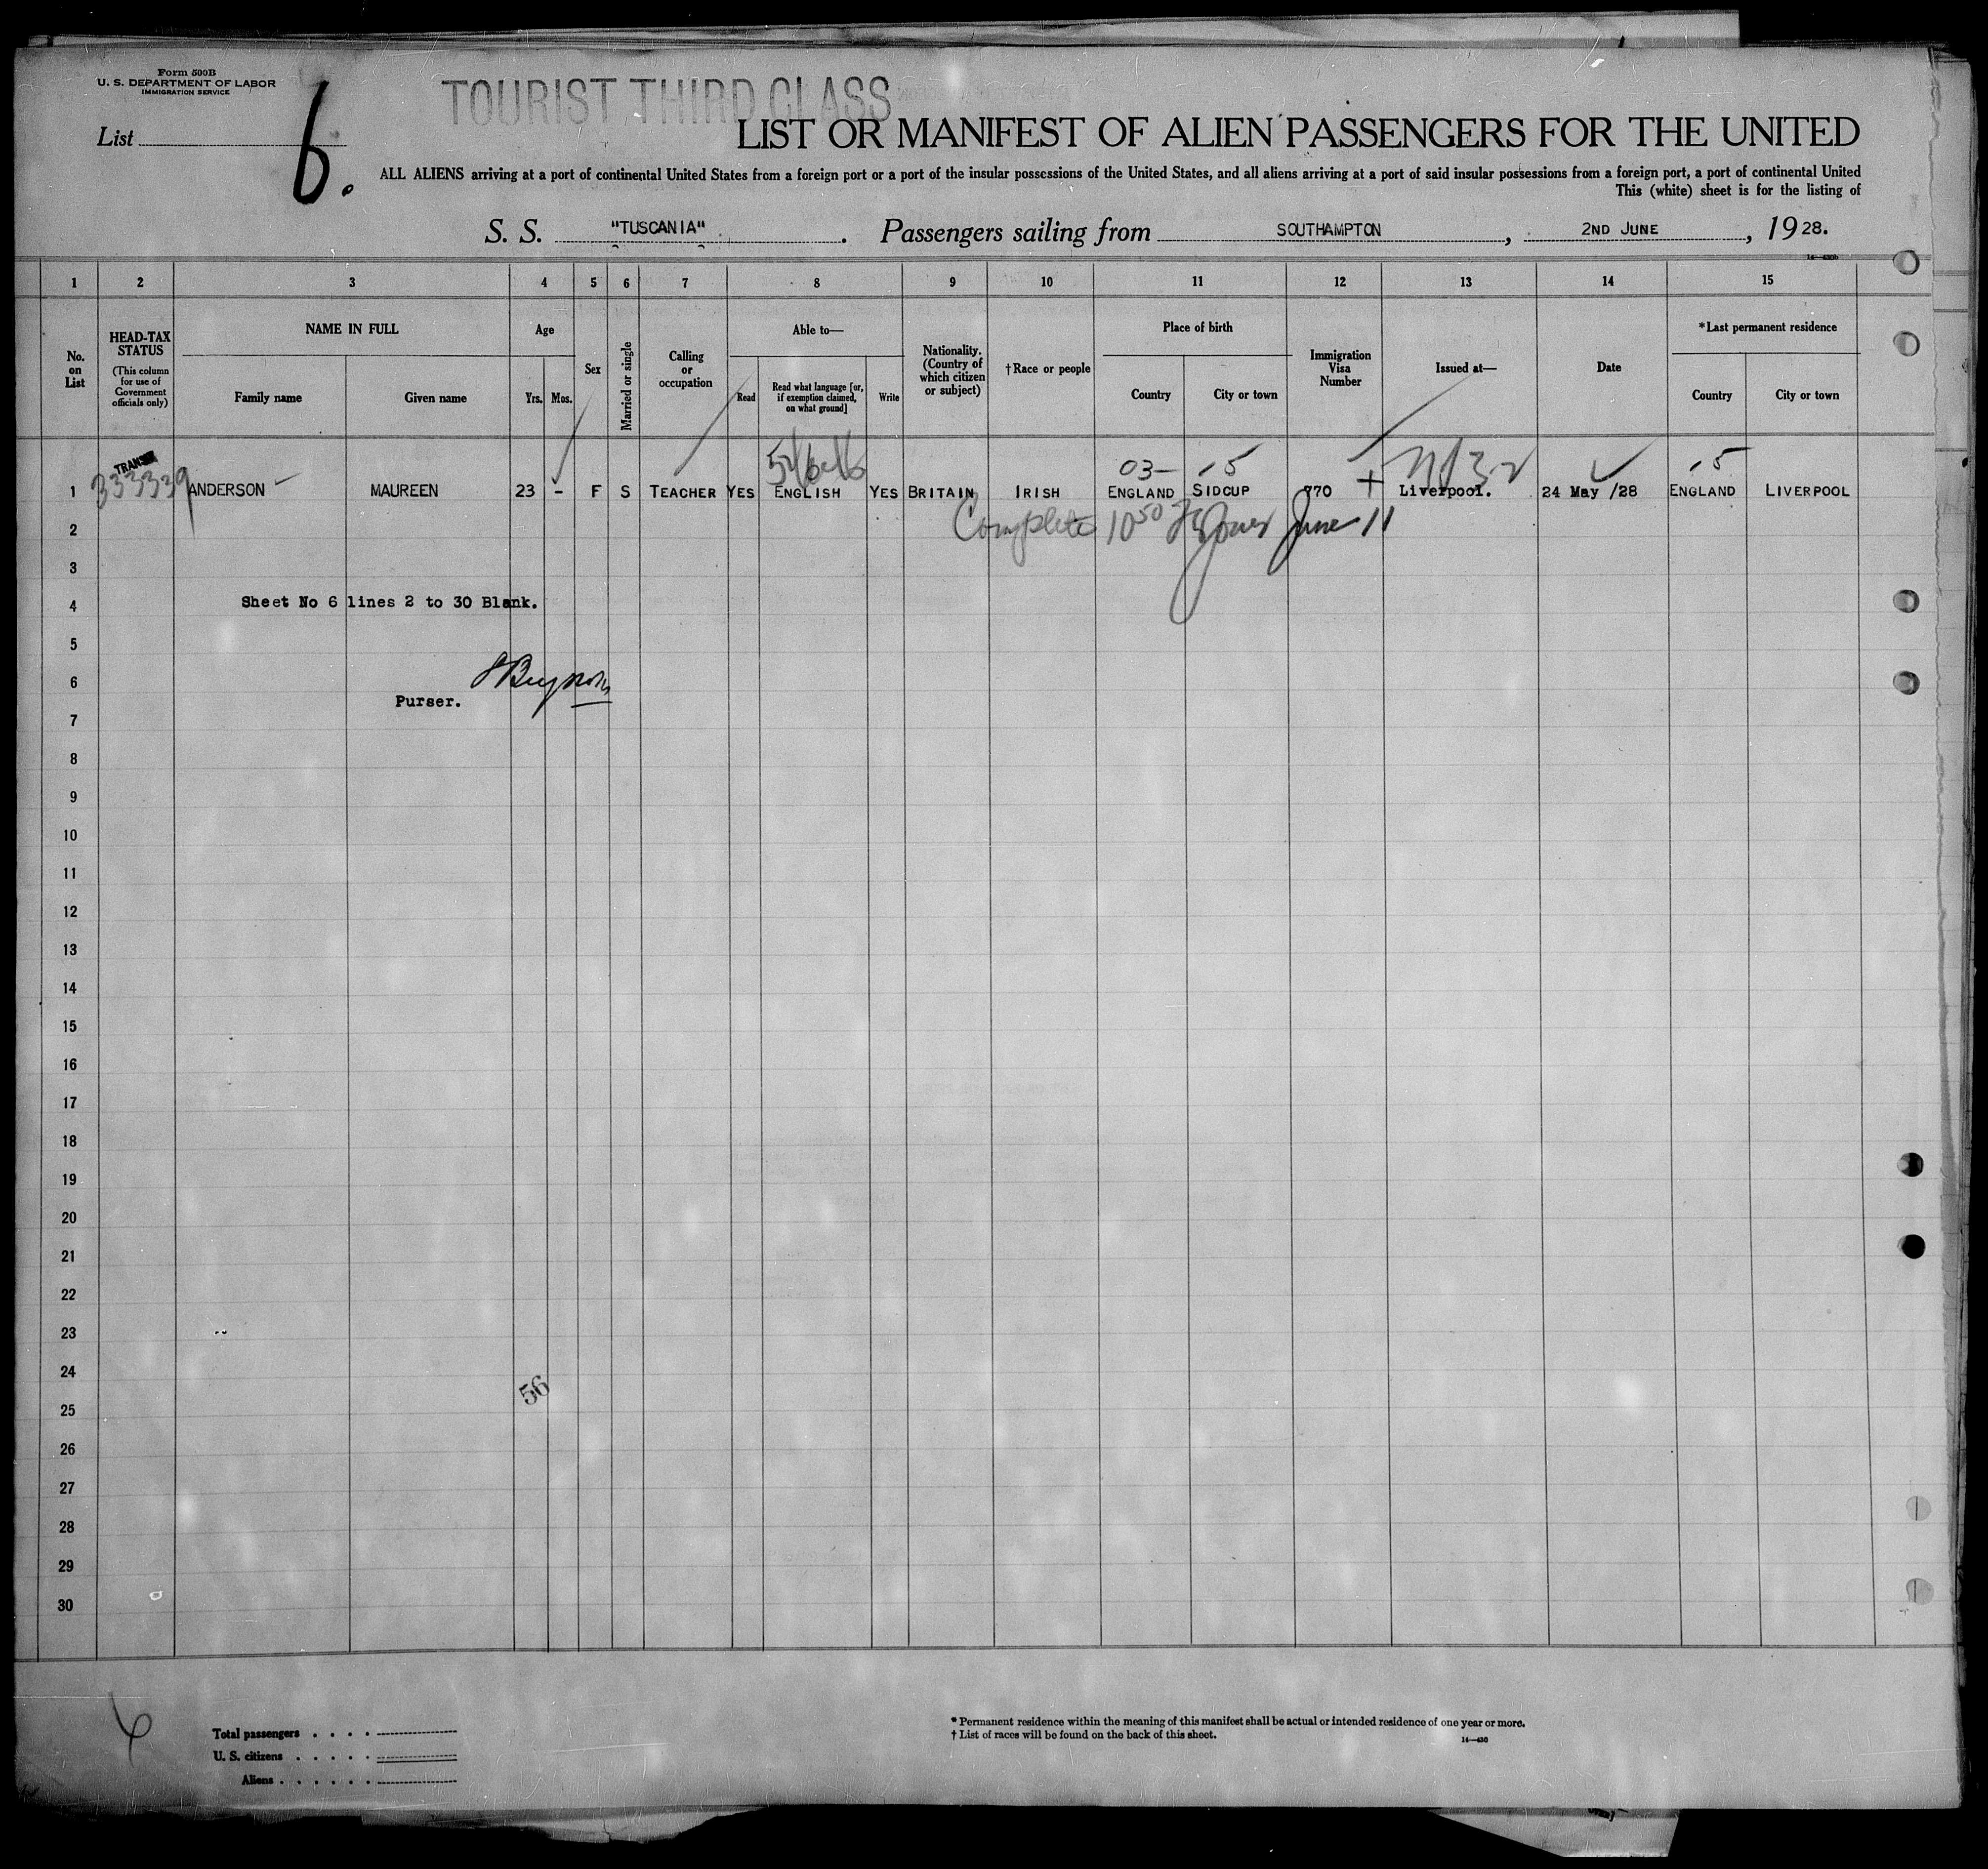 Form 500B
U. S. DEPARTMENT OF LABOR
IMMIGRATION SERVICE
TOURIST THIRD CLASS
List 6.
LIST OR MANIFEST OF ALIEN PASSENGERS FOR THE UNITED
ALL ALIENS arriving at a port of continental United States from a foreign port or a port of the insular possessions of the United States, and all aliens arriving at a port of said insular possessions from a foreign port, a port of continental United
This (white) sheet is for the listing of
S. S. "TUSCANIA". Passengers sailing from SOUTHAMPTON, 2ND JUNE, 1928.
1 2 3 4 5 6 7 8 9 10 11 12 13 14 15
No. on List
HEAD-TAX STATUS
(This column for use of Government officials only)
NAME IN FULL
Family name Given name
Age
Yrs. Mos.
Sex
Married or single
Calling or occupation
Able to—
Read
Read what language [or, if exemption claimed, on what ground]
Write
Nationality. (Country of which citizen or subject)
†Race or people
Place of birth
Country City or town
Immigration Visa Number
Issued at—
Date
*Last permanent residence
Country City or town
TRANSIT
333339
03- -5 -5
1 ANDERSON MAUREEN 23 - F S TEACHER YES ENGLISH YES BRITAIN IRISH ENGLAND SIDCUP 770 + Liverpool. 24 May /28 ENGLAND LIVERPOOL
2 Complete 10 50 June 11
3
4 Sheet No 6 lines 2 to 30 Blank.
5
6
Purser.
7
8
9
10
11
12
13
14
15
16
17
18
19
20
21
22
23
24
56
25
26
27
28
29
30
6
Total passengers
U. S. citizens
Aliens
* Permanent residence within the meaning of this manifest shall be actual or intended residence of one year or more.
† List of races will be found on the back of this sheet.
14—430